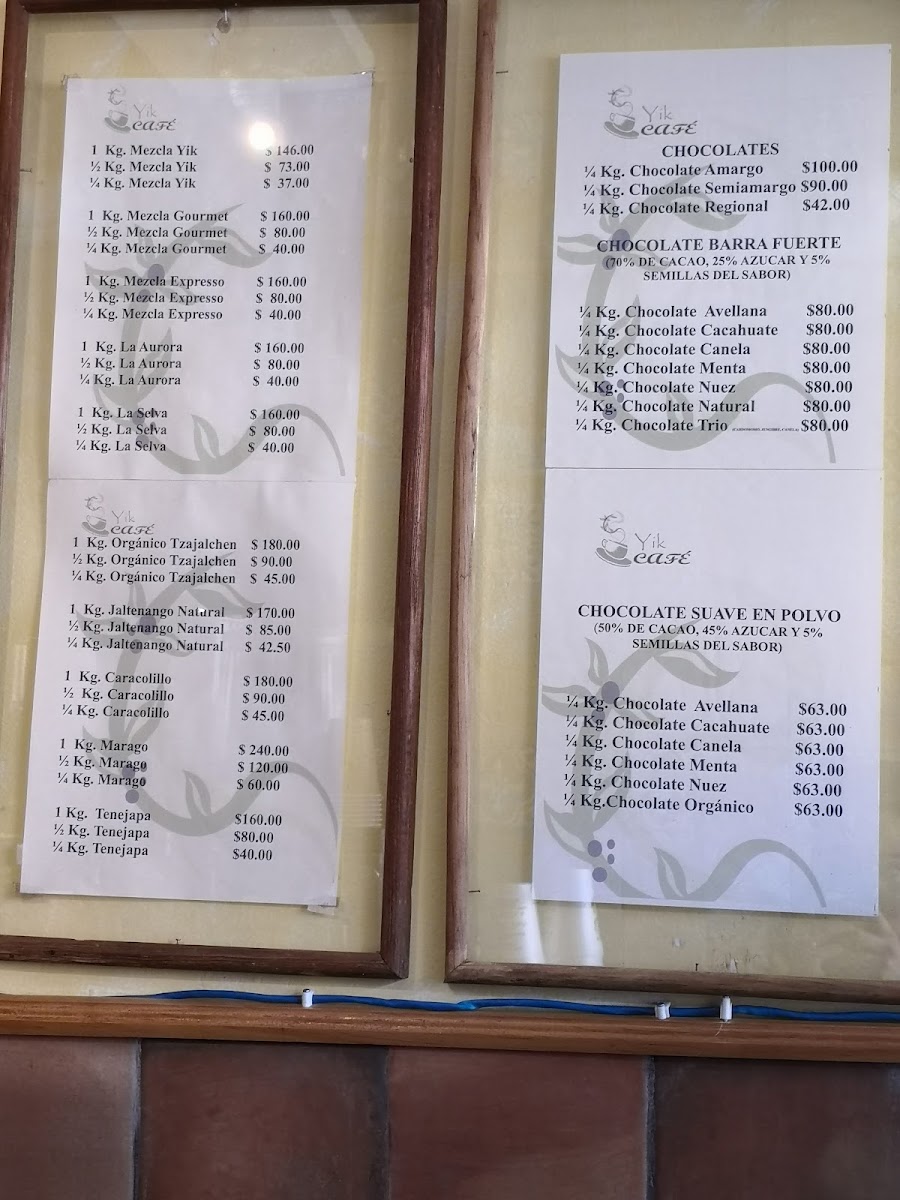 Yik
CAFÉ
1 Kg. Mezcla Yik $ 146.00
½ Kg. Mezcla Yik $ 73.00
¼ Kg. Mezcla Yik $ 37.00
1 Kg. Mezcla Gourmet $ 160.00
½ Kg. Mezcla Gourmet $ 80.00
¼ Kg. Mezcla Gourmet $ 40.00
1 Kg. Mezcla Expresso $ 160.00
½ Kg. Mezcla Expresso $ 80.00
¼ Kg. Mezcla Expresso $ 40.00
1 Kg. La Aurora $ 160.00
½ Kg. La Aurora $ 80.00
¼ Kg. La Aurora $ 40.00
1 Kg. La Selva $ 160.00
½ Kg. La Selva $ 80.00
¼ Kg. La Selva $ 40.00
Yik
CAFÉ
1 Kg. Orgánico Tzajalchen $ 180.00
½ Kg. Orgánico Tzajalchen $ 90.00
¼ Kg. Orgánico Tzajalchen $ 45.00
1 Kg. Jaltenango Natural $ 170.00
½ Kg. Jaltenango Natural $ 85.00
¼ Kg. Jaltenango Natural $ 42.50
1 Kg. Caracolillo $ 180.00
½ Kg. Caracolillo $ 90.00
¼ Kg. Caracolillo $ 45.00
1 Kg. Marago $ 240.00
½ Kg. Marago $ 120.00
¼ Kg. Marago $ 60.00
1 Kg. Tenejapa $160.00
½ Kg. Tenejapa $80.00
¼ Kg. Tenejapa $40.00
Yik
CAFÉ
CHOCOLATES
¼ Kg. Chocolate Amargo $100.00
¼ Kg. Chocolate Semiamargo $90.00
¼ Kg. Chocolate Regional $42.00
CHOCOLATE BARRA FUERTE
(70% DE CACAO, 25% AZUCAR Y 5%
SEMILLAS DEL SABOR)
¼ Kg. Chocolate Avellana $80.00
¼ Kg. Chocolate Cacahuate $80.00
¼ Kg. Chocolate Canela $80.00
¼ Kg. Chocolate Menta $80.00
¼ Kg. Chocolate Nuez $80.00
¼ Kg. Chocolate Natural $80.00
¼ Kg. Chocolate Trio $80.00
Yik
CAFÉ
CHOCOLATE SUAVE EN POLVO
(50% DE CACAO, 45% AZUCAR Y 5%
SEMILLAS DEL SABOR)
¼ Kg. Chocolate Avellana $63.00
¼ Kg. Chocolate Cacahuate $63.00
¼ Kg. Chocolate Canela $63.00
¼ Kg. Chocolate Menta $63.00
¼ Kg. Chocolate Nuez $63.00
¼ Kg.Chocolate Orgánico $63.00